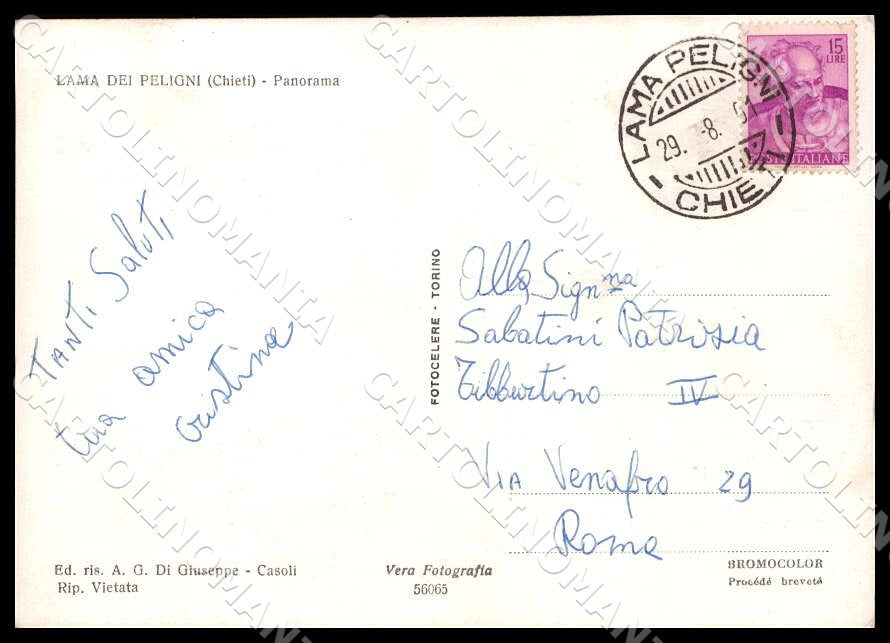 LAMA DEI PELIGNI (Chieti) - Panorama
LAMA PELIGNI
29. -8. 61
CHIETI
15
LIRE
POSTE ITALIANE
TANTI Saluti
tua amica
Cristina
FOTOCELERE - TORINO
Alla Sign.na
Sabatini Patrisia
Tibburtino IV
VIA Venafro 29
Roma
Ed. ris. A. G. Di Giuseppe - Casoli
Rip. Vietata
Vera Fotografia
56065
BROMOCOLOR
Procédé breveté
CARTOLINOMANIA